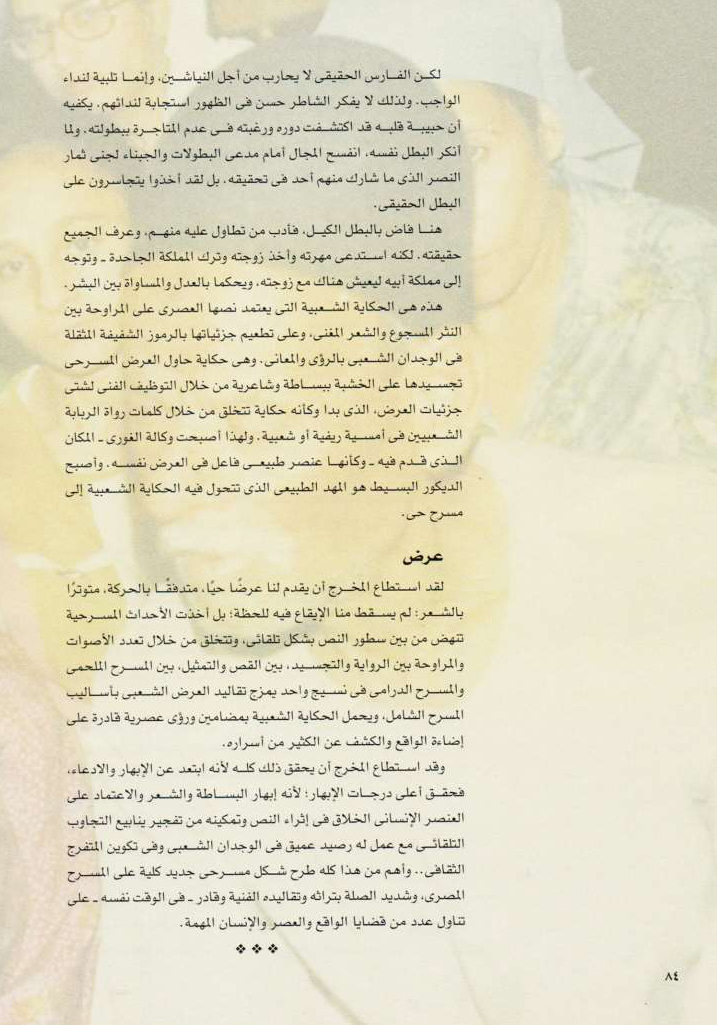 لكـن الفـارس الحقيقى لا يحارب من أجل النياشـين، وإنمـا تلبية لنداء
الواجب. ولذلك لا يفكر الشاطر حسن فى الظهور استجابة لندائهم. يكفيه
أن حبيبـة قلبـه قد اكتشـفت دوره ورغبته فـى عدم المتاجـرة ببطولته. ولما
أنكر البطل نفسه، انفسح المجال أمام مدعى البطولات والجبناء لجنى ثمار
النصر الذى ما شارك منهم أحد فى تحقيقه. بل لقد أخذوا يتجاسرون على
البطل الحقيقى.
هنـا فاض بالبطل الكيـل، فأدب من تطاول عليه منهـم، وعرف الجميع
حقيقته. لكنه اسـتدعى مهرته وأخذ زوجته وترك المملكة الجاحدة ـ وتوجه
إلى مملكة أبيه ليعيش هناك مع زوجته، ويحكما بالعدل والمساواة بين البشر.
هذه هى الحكاية الشـعبية التى يعتمد نصها العصرى على المراوحة بين
النثر المسجوع والشعر المغنى، وعلى تطعيم جزئياتها بالرموز الشفيفة المثقلة
فى الوجدان الشـعبى بالرؤى والمعانى. وهى حكاية حاول العرض المسـرحى
تجسـيدها على الخشبة ببسـاطة وشاعرية من خلال التوظيف الفنى لشتى
جزئيات العرض، الذى بدا وكأنه حكاية تتخلق من خلال كلمات رواة الربابة
الشـعبيين فى أمسـية ريفية أو شعبية. ولهذا أصبحت وكالة الغورى ـ المكان
الـذى قـدم فيه ـ وكأنهـا عنصر طبيعـى فاعل فى العرض نفسـه. وأصبح
الديكور البسـيط هو المهد الطبيعى الذى تتحول فيه الحكاية الشـعبية إلى
مسرح حى.
عرض
لقد اسـتطاع المخـرج أن يقدم لنا عرضًا حيًا، متدفقًـا بالحركة، متوترًا
بالشـعر؛ لم يسـقط منا الإيقاع فيه للحظة؛ بل أخذت الأحداث المسـرحية
تنهض من بين سطور النص بشكل تلقائى، وتتخلق من خلال تعدد الأصوات
والمراوحة بين الرواية والتجسـيد، بين القص والتمثيل، بين المسـرح الملحمى
والمسـرح الدرامى فى نسـيج واحد يمزج تقاليد العرض الشـعبى بأسـاليب
المسرح الشامل، ويحمل الحكاية الشعبية بمضامين ورؤى عصرية قادرة على
إضاءة الواقع والكشف عن الكثير من أسراره.
وقد اسـتطاع المخرج أن يحقق ذلك كلـه لأنه ابتعد عن الإبهار والادعاء،
فحقـق أعلى درجـات الإبهار؛ لأنه إبهار البسـاطة والشـعر والاعتماد على
العنصر الإنسانى الخلاق فى إثراء النص وتمكينه من تفجير ينابيع التجاوب
التلقائـى مع عمل له رصيد عميق فى الوجدان الشـعبى وفى تكوين المتفرج
الثقافى.. وأهم من هذا كله طرح شـكل مسـرحى جديد كلية على المسـرح
المصرى، وشديد الصلة بتراثه وتقاليده الفنية وقادر ـ فى الوقت نفسه ـ على
تناول عدد من قضايا الواقع والعصر والإنسان المهمة.
❖ ❖ ❖
٨٤